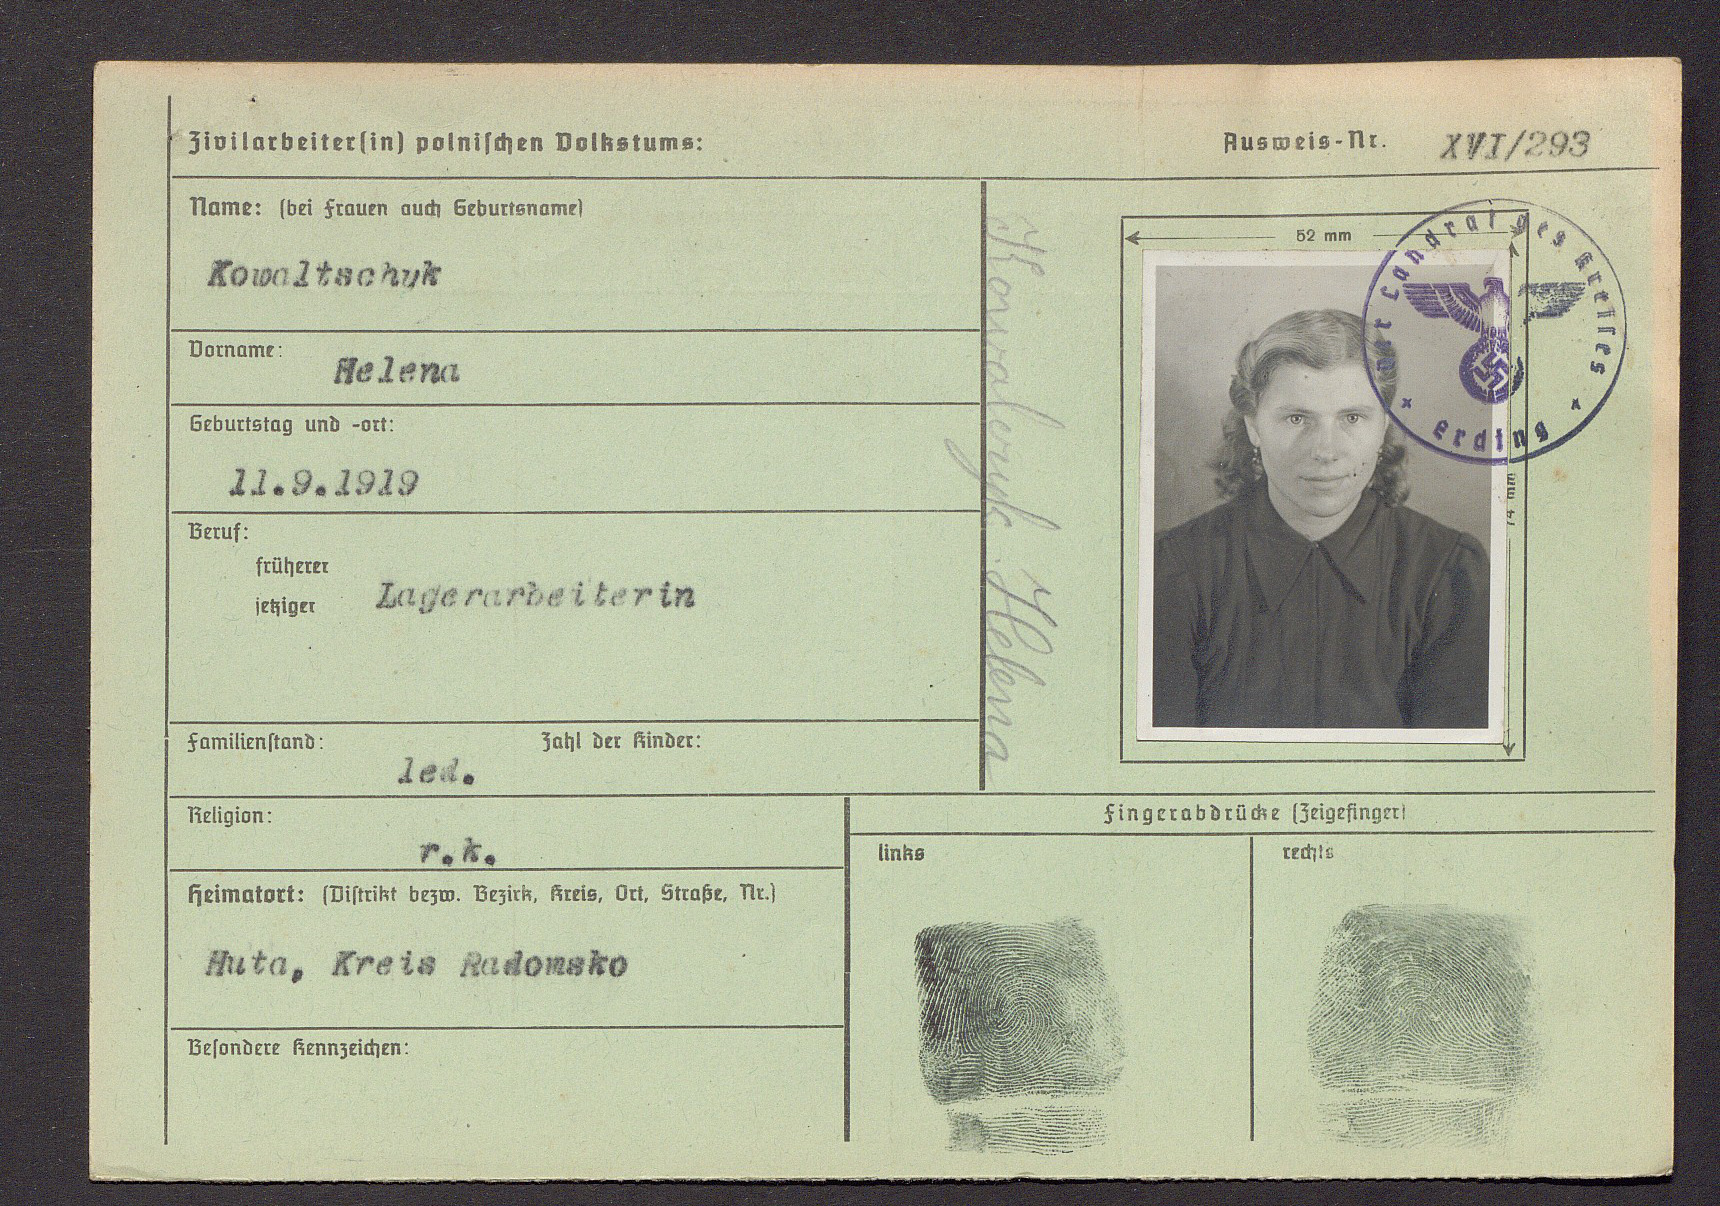 Zivilarbeiter(in) polnischen Volkstums:
Ausweis-Nr. XVI/293
Name: (bei Frauen auch Geburtsname)
Kowaltschuk
Vorname:
Helena
Geburtstag und -ort:
11.9.1919
Beruf:
früherer
jetziger
Lagerarbeiterin
Familienstand:
led.
Zahl der Kinder:
Religion:
r.k.
Heimatort: (Distrikt bezw. Bezirk, Kreis, Ort, Straße, Nr.)
Huta, Kreis Radomsko
Besondere Kennzeichen:
Helena
52 mm
74 mm
Der Landrat des Kreises
Erding
Fingerabdrücke (Zeigefinger)
links
rechts